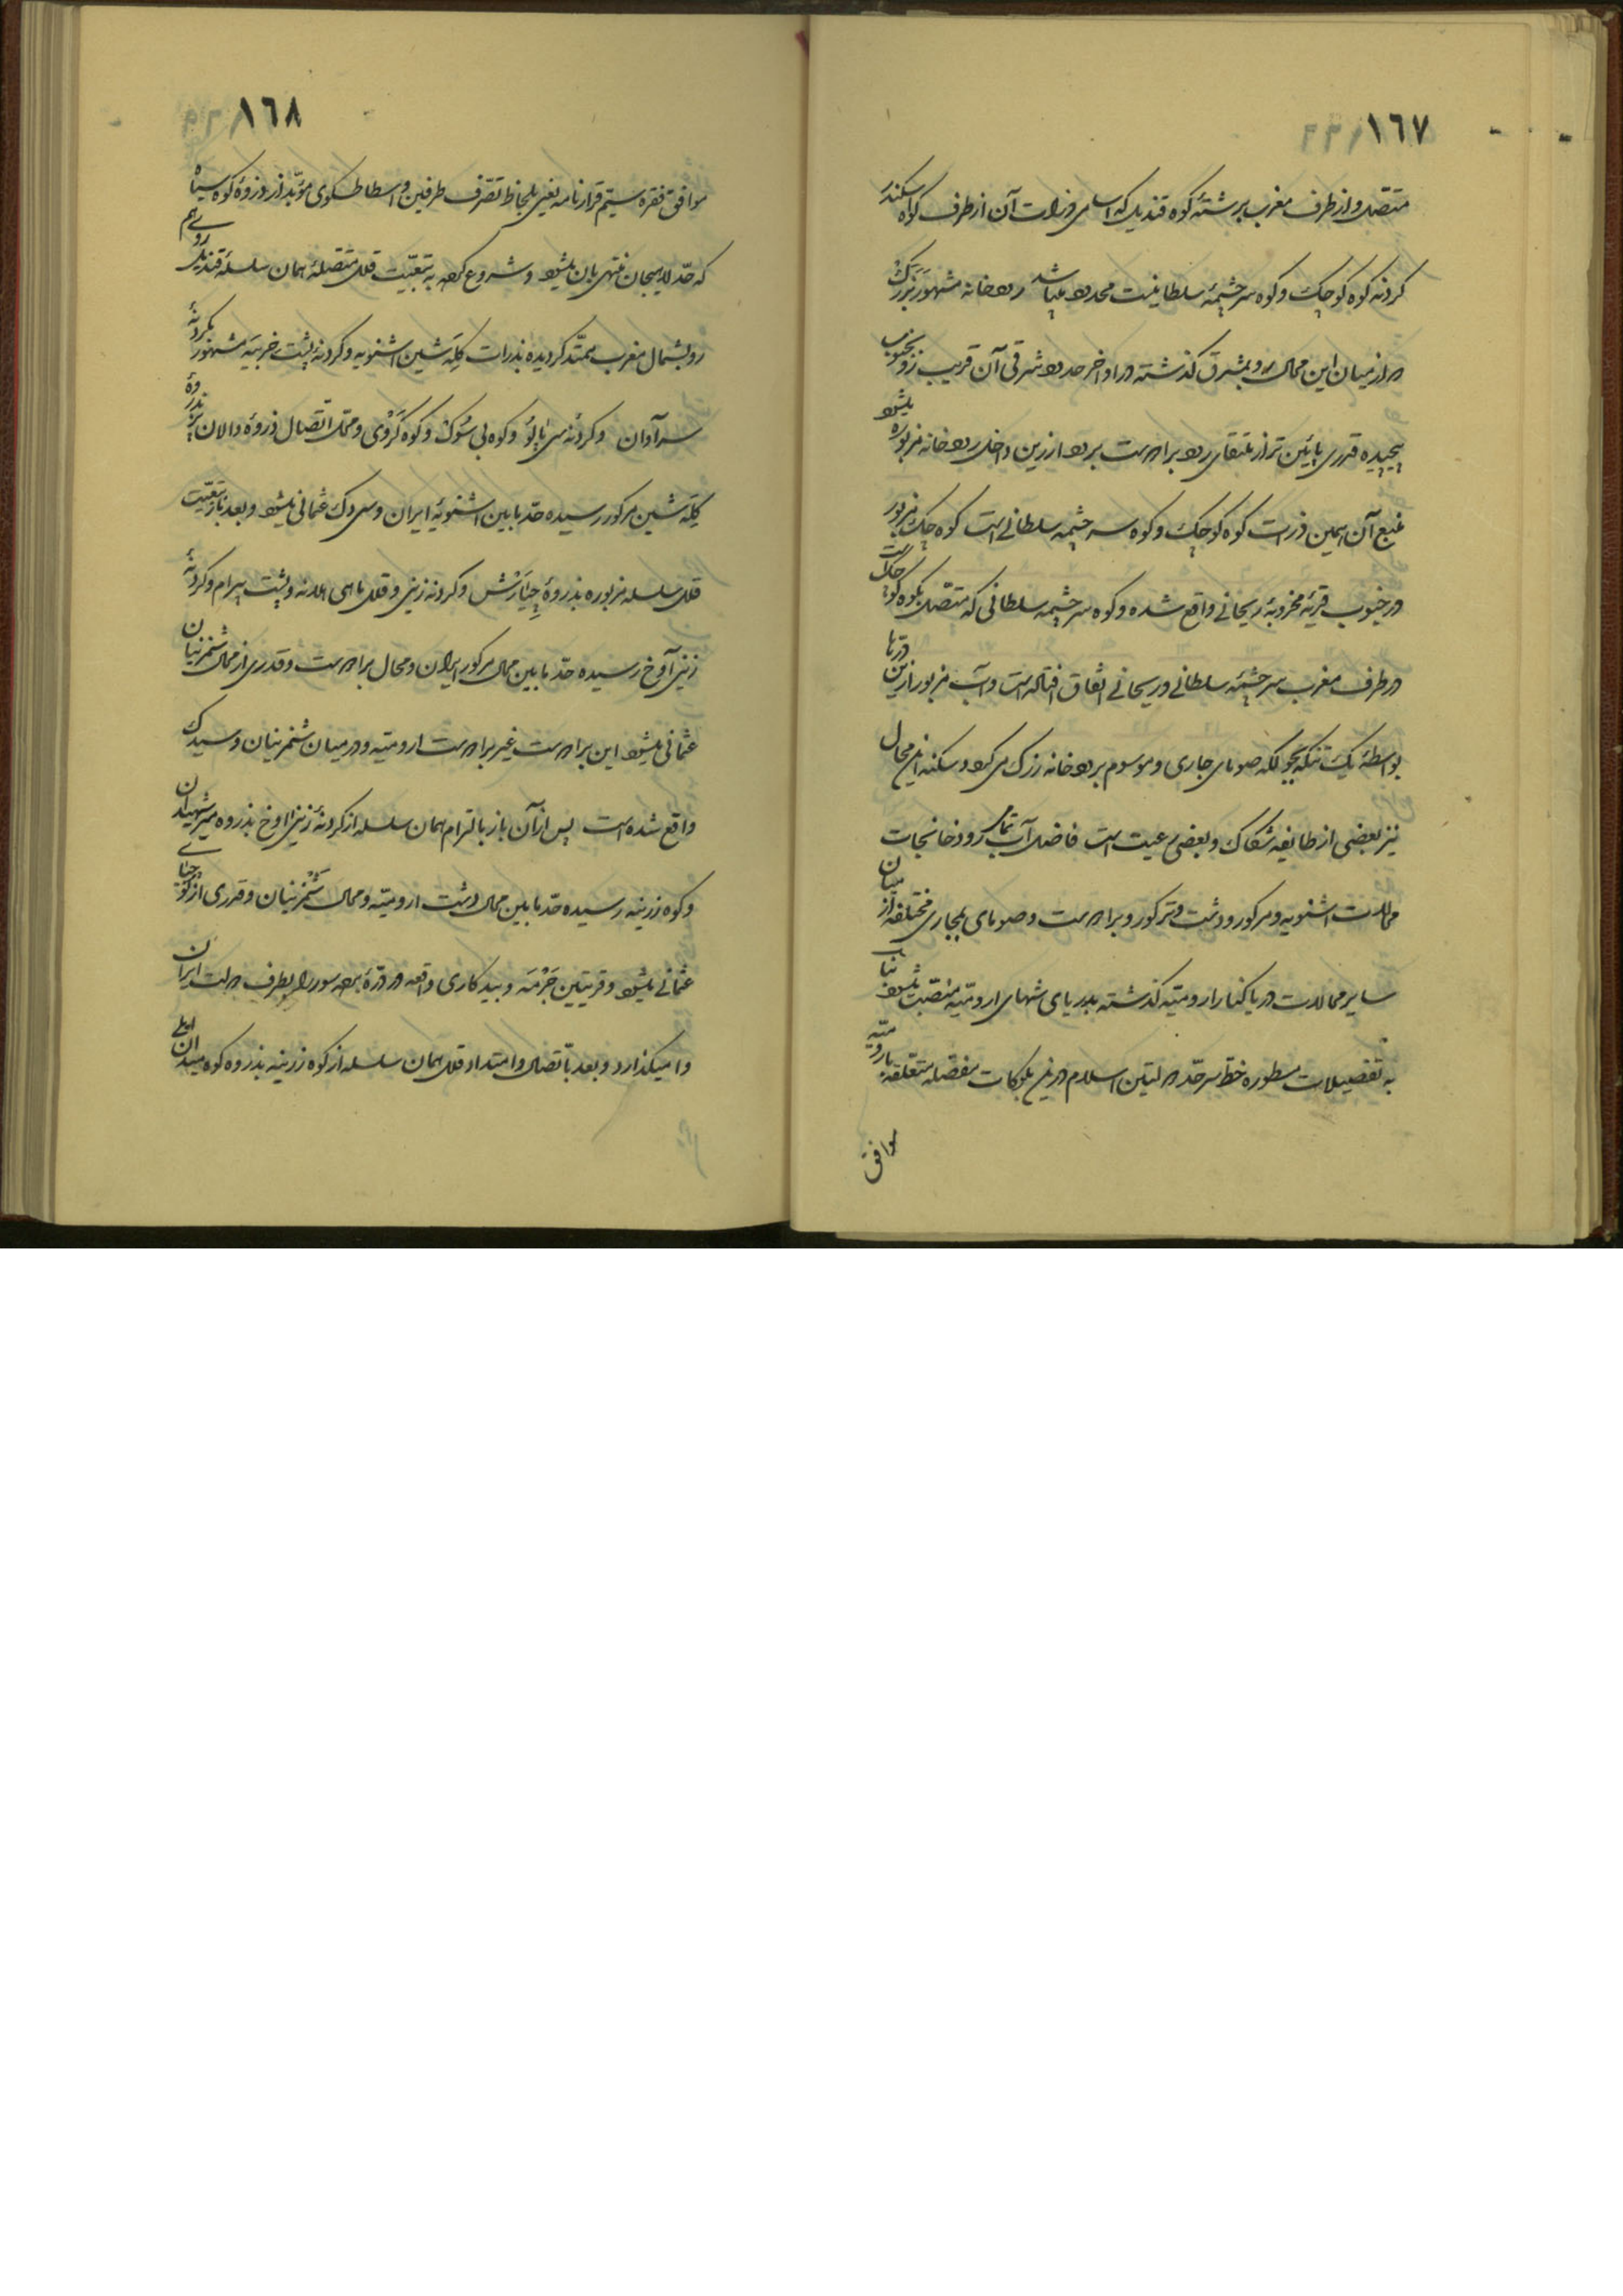 ١٦٧
متصل و از طرف مغرب برشتهٔ کوه قندیل که اسامی ذروات آن از طرف کوه اسکندر
کردنه کوه کوچک و کوه سرچشمهٔ سلطانیست محدود میباشد رودخانه مشهور بزرک
در از میان این محال رو بمشرق کذشته در اواخر حدود شرقی آن قریب زو بجنوب
پیچیده قدری پائین تر از ملتقای رود برادوست برود ازرین داخل رودخانه مزبوره میشود
منبع آن همین ذروات کوه کوچک و کوه سرچشمه سلطانی است کوه کوچک مزبور
در جنوب قریهٔ مخروبهٔ ریحانی واقع شده و کوه سرچشمه سلطانی که متصل بکوه کوچک است
در طرف مغرب سرچشمهٔ سلطانی و ریحانی اتفاق افتاده است و آب مزبور ازین درّها
بواسطهٔ یک تنکه بجولکه صومای جاری و موسوم برودخانه زرک می کردد و سکنه این محال
نیز بعضی از طایفه شکاک و بعضی رعیت است فاضل آب تمامی رودخانجات
محالات اشنویه و مرکور و دشت و ترکور و برادوست و صومای بمجاری مختلفه از میان
سایر محالات دریا کنار ارومیّه کذشته بدریای شهای ارومیّه منصّب میشوند بناب
به تفصیلات مسطوره خط سرحدّ دولتین اسلام درین بلوکات مفصله متعلقهٔ بارومیّه
موافق
١٦٨
موافق فقره سیّم قرارنامه یعنی بلحاظ تصّرف طرفین و اسطاطسکوی مؤبّد از ذروهٔ کوه سیاه
که حدّ لاهیجان منتهی بان میشود و شروع کرده به تبعیّت قلل متصلهٔ همان سلسلهٔ قندیل رو بهم
رو بشمال مغرب ممتّد کردیده بذروات کلِه شین اشنویه و کردنهٔ پشت خربیَه مشهور بکردنهٔ
سرآوان و کردنه سی بابوُ و کوه بی سُوک و کوه کَروْی و محل اتّصال ذروهٔ دالان پر بذروهٔ
کلِه شین مرکور رسیده حدّ مابین اشنویهٔ ایران و سی دک عثمانی میشود و بعد باز بتبعیّت
قلل سلسله مزبوره بذروهٔ جِیارَش و کردنه زینی و قلل ماهی هلانه و پشت بیرام و کردنهٔ
زینی آوخ رسیده حدّ مابین محال مرکور ایران و محال برادوست و قدری از محال شمزینان
عثمانی میشود این برادوست غیر برادوست ارومیّه و در میان شمزینان و سیدک
واقع شده است پس از آن باز بالتزام همان سلسله از کردنهٔ زینی اوخ بذروه میر شهیدان
و کوه زرینه رسیده حدّ مابین محال دشت ارومیّه و محال شَمزینان و قدری از کوّرجیای
عثمانی میشود و قریتین جَرْمَه و بیدکاری واقعه در درّهٔ برده سور را بطرف دولت ایران
وا میکذارد و بعد باتّصال و امتداد قلل همان سلسله از کوه زرینه بذروه کوه میدان اولی